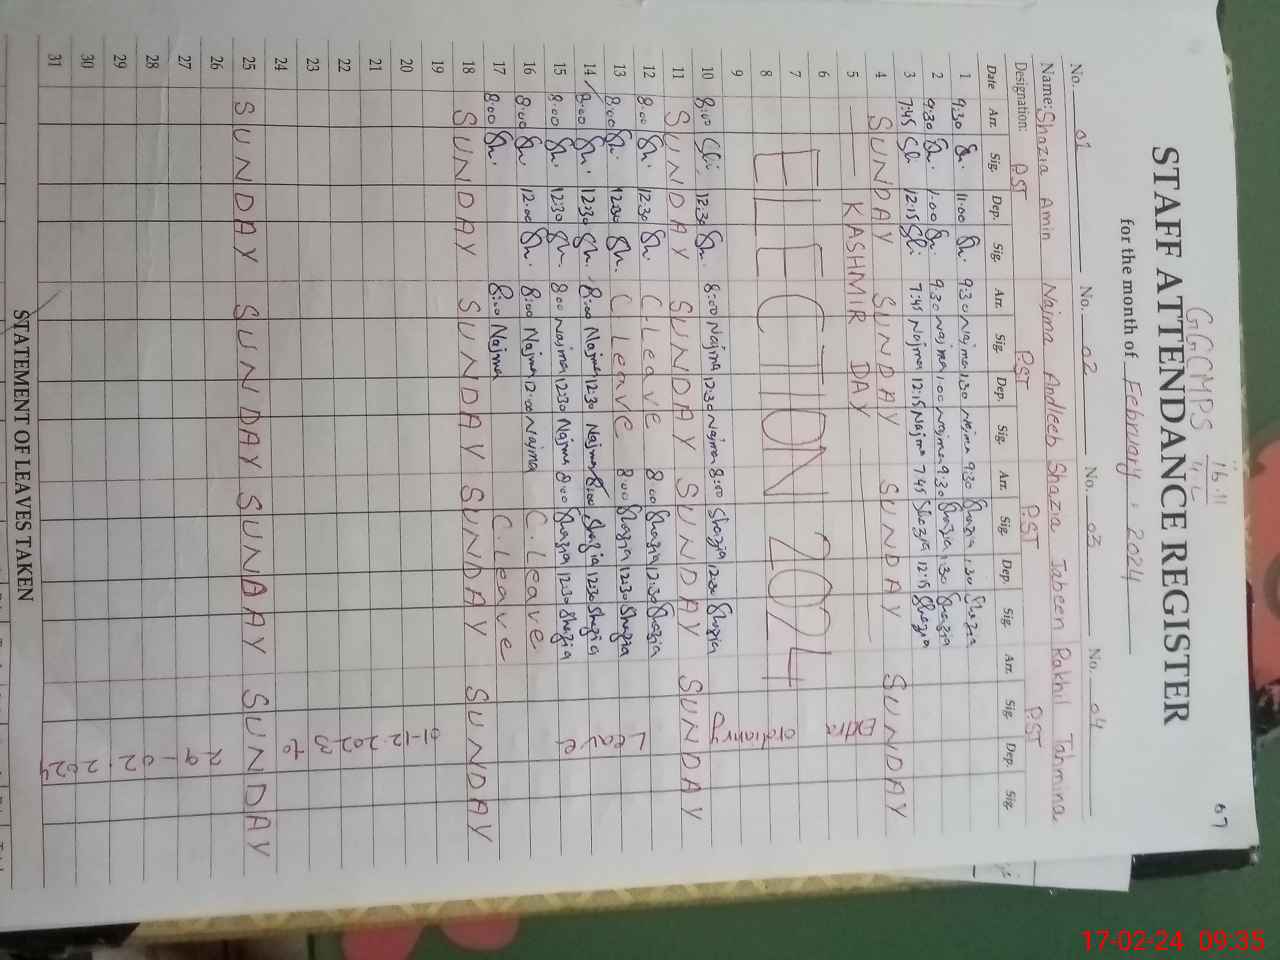 07
GGCMPS 16.11
4-L
STAFF ATTENDANCE REGISTER
for the month of February, 2024
No. 01 No. 02 No. 03 No. 04
Name: Shazia Amin Najma Andleeb Shazia Jabeen Rakhil Tahmina
Designation: PST PST PST PST
Date Arr. Sig. Dep. Sig. Arr. Sig. Dep. Sig. Arr. Sig. Dep. Sig. Arr. Sig. Dep. Sig.
1 9:30 Sh. 11:00 Sh. 9:30 Najma 1:30 Najma 9:30 Shazia 1:30 Shazia
2 9:30 Sh. 1:00 Sh. 9:30 Najma 1:00 Najma 9:30 Shazia 1:30 Shazia
3 7:45 Sh. 12:15 Sh. 7:45 Najma 12:15 Najma 7:45 Shazia 12:15 Shazia
4 SUNDAY SUNDAY SUNDAY SUNDAY
5 KASHMIR DAY Extra
6
7 ELECTION 2024 ordianry
8
9
10 8:00 Sh. 12:30 Sh. 8:00 Najma 12:30 Najma 8:00 Shazia 12:30 Shazia
11 SUNDAY SUNDAY SUNDAY SUNDAY
12 8:00 Sh. 12:30 Sh. C-Leave 8:00 Shazia 12:30 Shazia Leave
13 8:00 Sh. 12:30 Sh. C Leave 8:00 Shazia 12:30 Shazia
14 8:00 Sh. 12:30 Sh. 8:00 Najma 12:30 Najma 8:00 Shazia 12:30 Shazia
15 8:00 Sh. 12:30 Sh. 8:00 Najma 12:30 Najma 8:00 Shazia 12:30 Shazia
16 8:00 Sh. 12:00 Sh. 8:00 Najma 12:00 Najma C.Leave
17 8:00 Sh. 8:00 Najma C.Leave
18 SUNDAY SUNDAY SUNDAY SUNDAY
19 01-12-2023
20
21
22
23
24 to
25 SUNDAY SUNDAY SUNAAY SUNDAY
26 29-02-2024
27
28
29
30
31
STATEMENT OF LEAVES TAKEN
17-02-24 09:35